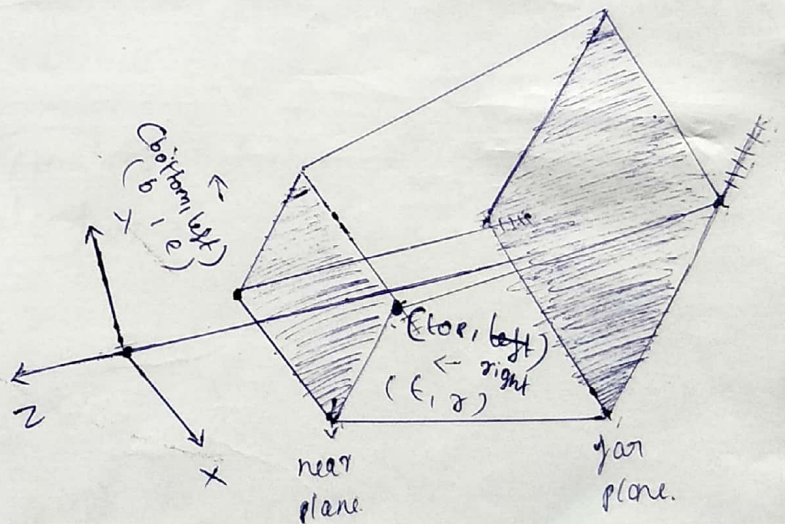 (bottom, left)
(b, l)
Z
X
(top, left)
right
(t, r)
near
plane.
far
plane.